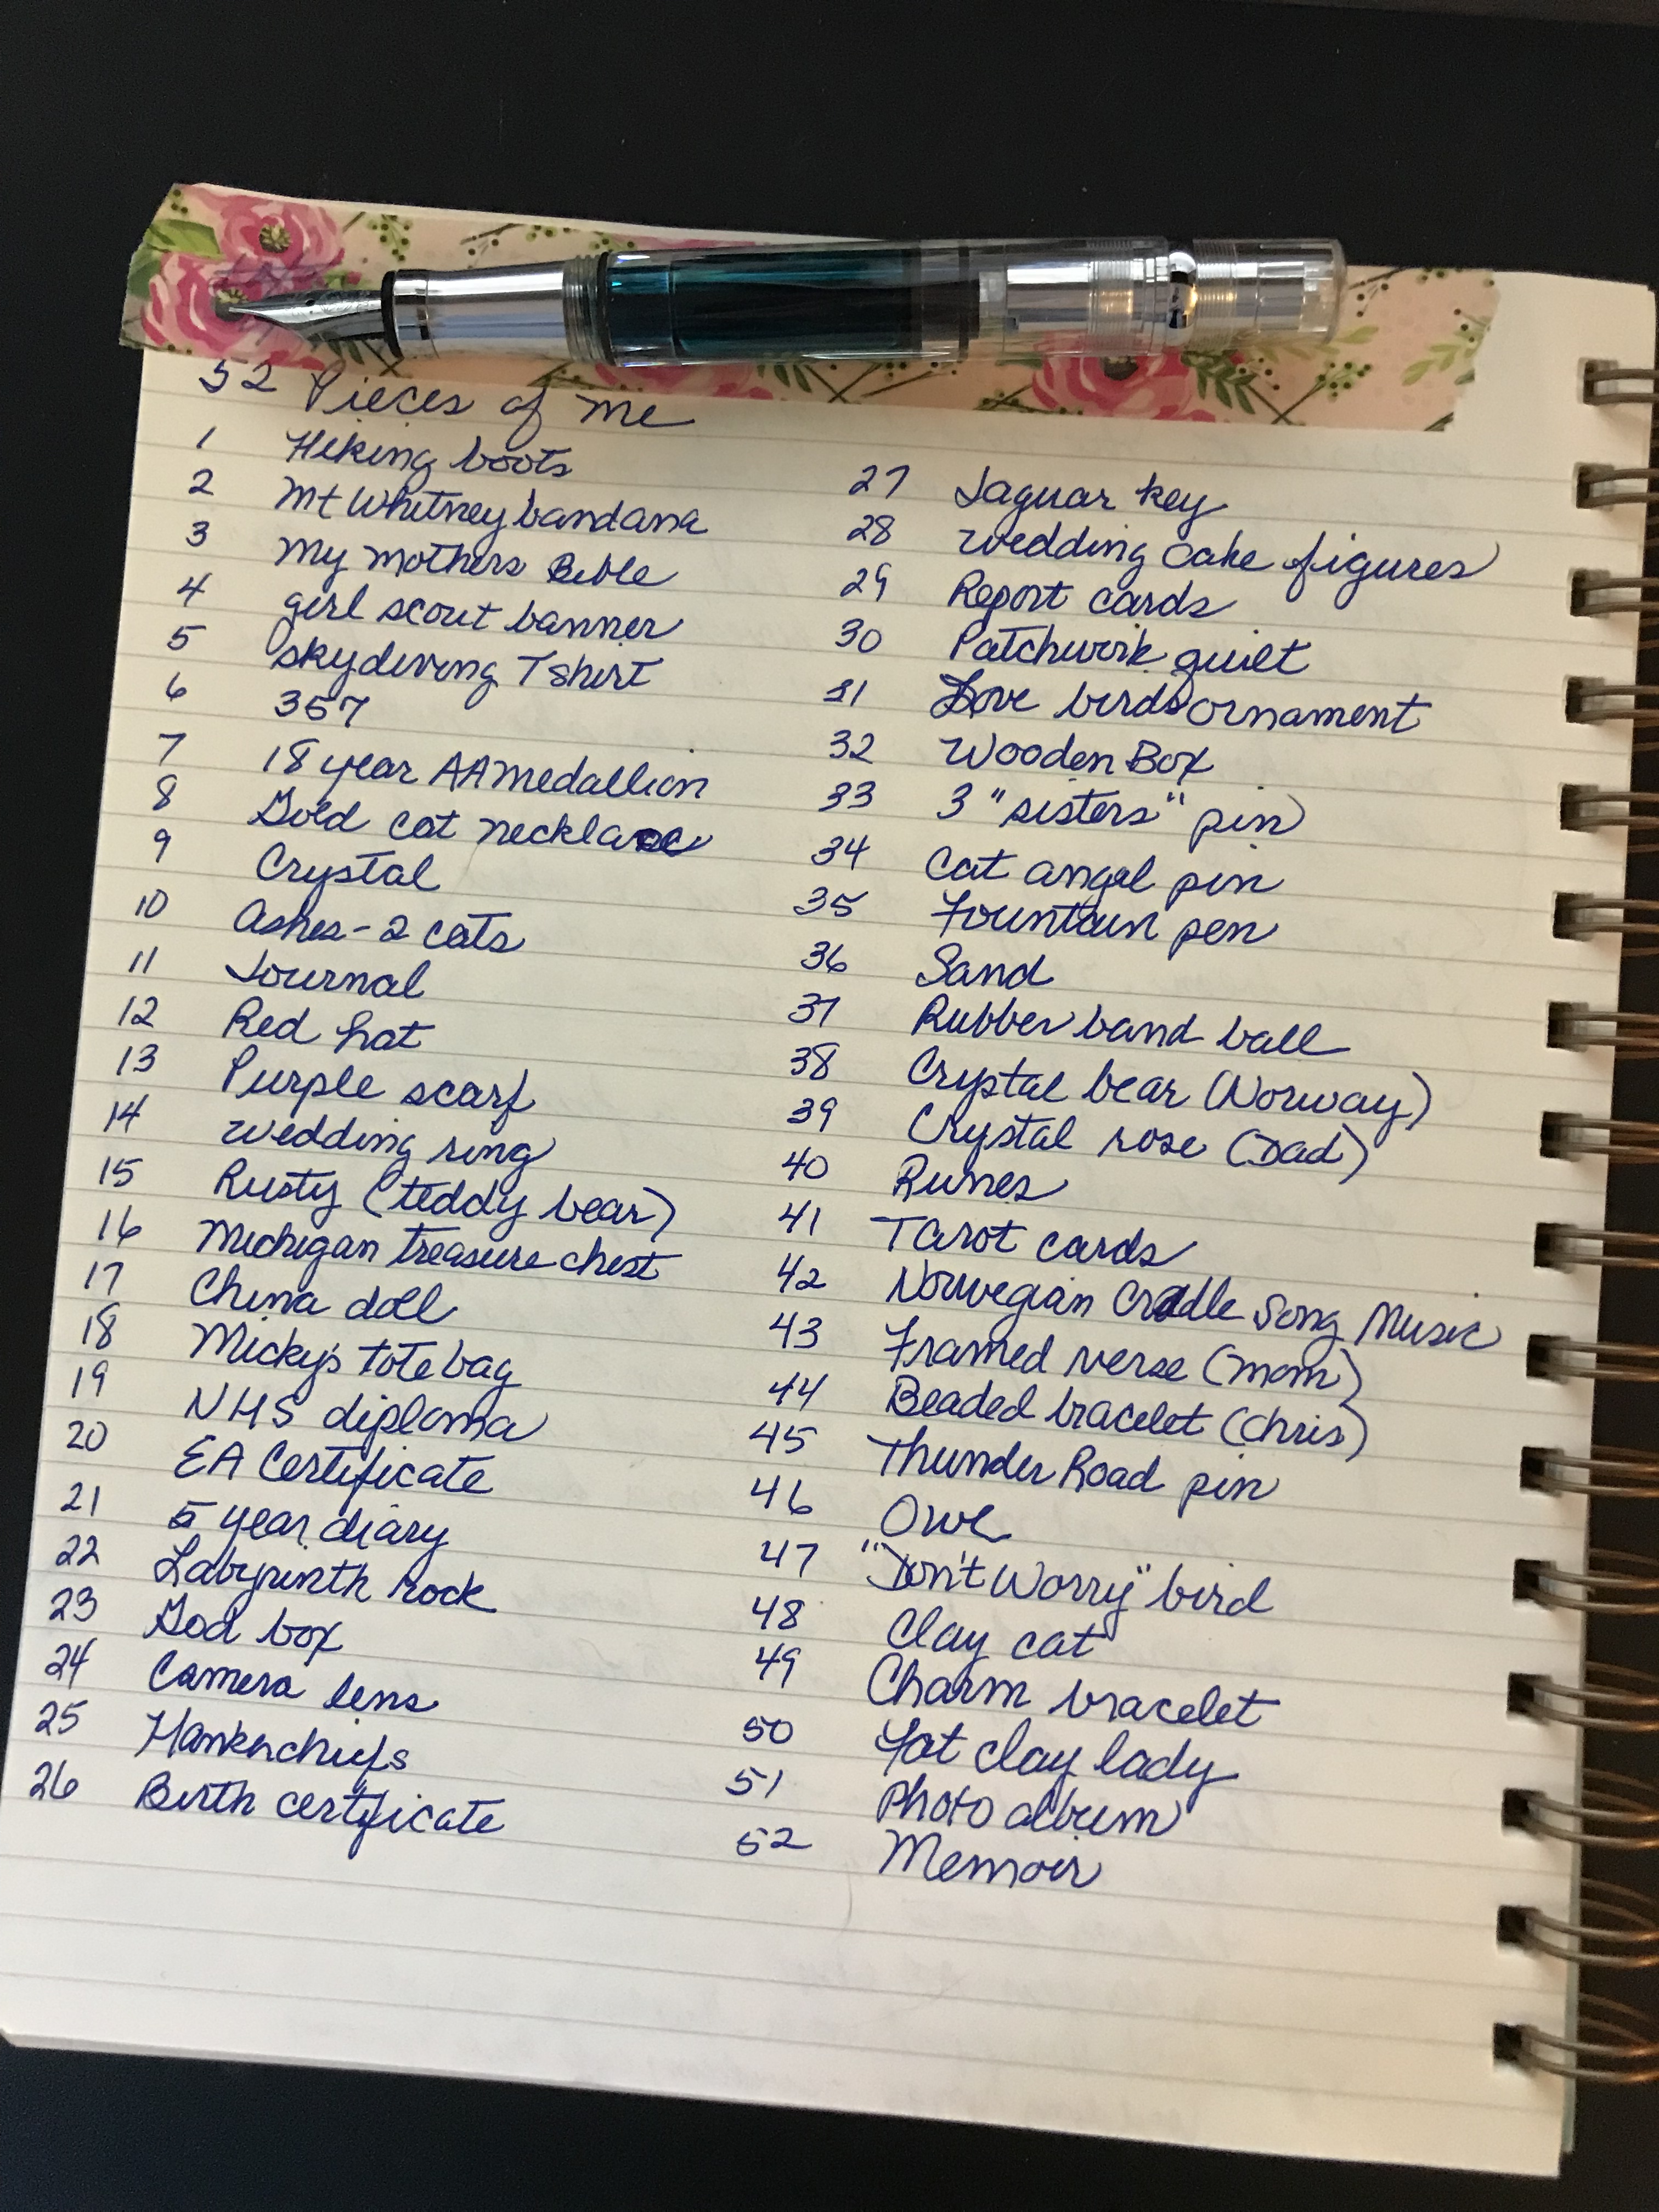 52 Pieces of me
1 Hiking boots
2 Mt Whitney bandana
3 My mothers Bible
4 girl scout banner
5 skydiving T shirt
6 357
7 18 year AA medallion
8 Gold cat necklace
9 Crystal
10 Ashes - 2 cats
11 Journal
12 Red hat
13 Purple scarf
14 wedding ring
15 Rusty (teddy bear)
16 Michigan treasure chest
17 China doll
18 Micky's tote bag
19 NHS diploma
20 EA Certificate
21 5 year diary
22 Labyrinth rock
23 God box
24 Camera lens
25 Hankerchiefs
26 Birth certificate
27 Jaguar key
28 wedding cake figures
29 Report cards
30 Patchwork quilt
31 Love birds ornament
32 Wooden Box
33 3 "sisters" pin
34 Cat angel pin
35 Fountain pen
36 Sand
37 Rubber band ball
38 Crystal bear (Norway)
39 Crystal rose (Dad)
40 Runes
41 Tarot cards
42 Norwegian Cradle Song Music
43 Framed verse (mom)
44 Beaded bracelet (Chris)
45 Thunder Road pin
46 Owl
47 "Don't Worry" bird
48 Clay cat
49 Charm bracelet
50 Fat clay lady
51 Photo album
52 Memoir